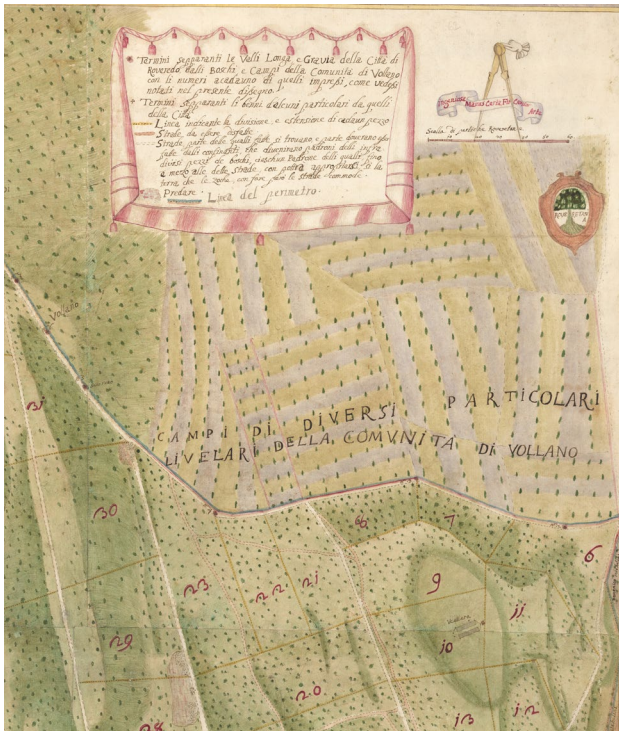 Termini sepparanti le Valli Longa e Gravia della Città di
Roveredo dalli Boschi e Campi della Comunità di Vollano
con li numeri acadauno di quelli impressi, come vedesi
notati nel presente disegno.
Termini sepparanti li beni d'alcuni particolari da quelli
della Città
Linea indicante la divisione, e estensione di cadaun pezzo
Strade, da essere
Strade parte delle quali fatte si trovano, e parte doveranno
che diveniranno padroni delli
diversi pezzi de boschi, ciaschun Padrone delli quali fino
a mezzo alle delle Strade, con potersi la
terra che le con fare però le strade commode.
Predare.
Linea del perimetro.
Scalla di pertiche Roveretane
ROVE RETAN
A
Vollano
CAMPI DI DIVERSI PARTICOLARI
LIVELARI DELLA COMVNITÀ DI VOLLANO
31
30
23
22
21
7
6
9
11
10
29
20
28
13
12